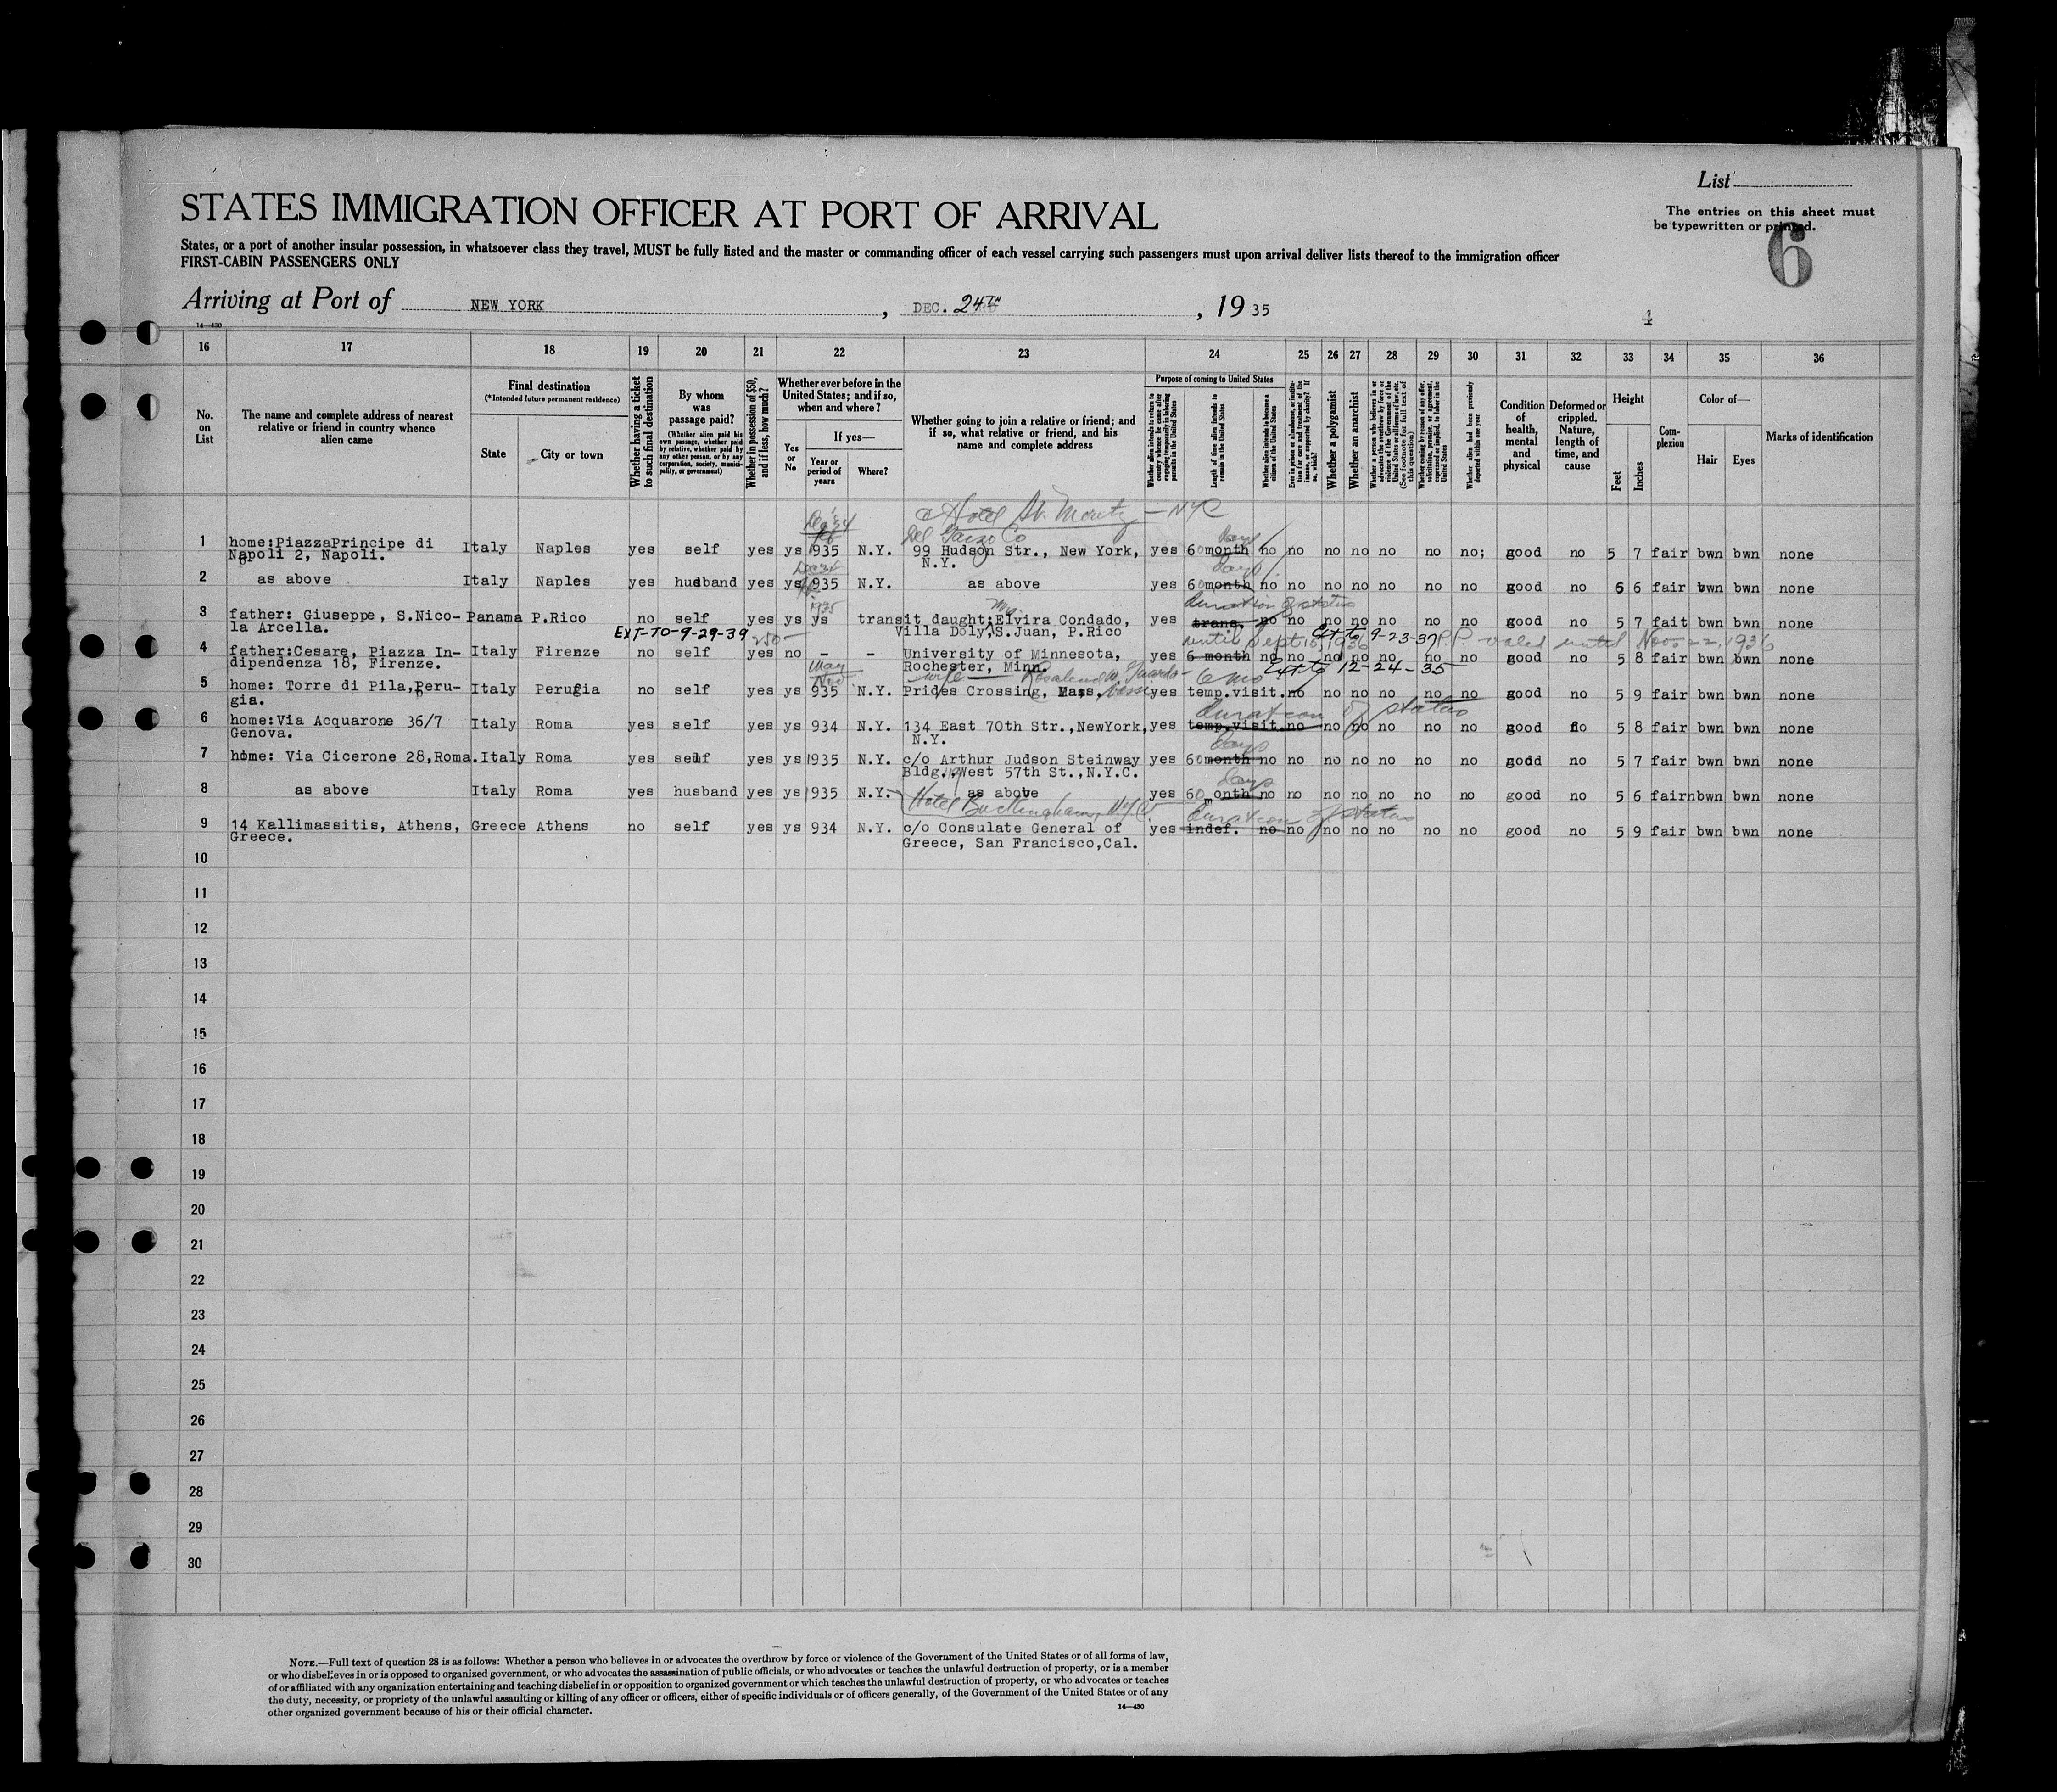 List
STATES IMMIGRATION OFFICER AT PORT OF ARRIVAL
The entries on this sheet must
be typewritten or printed.
6
States, or a port of another insular possession, in whatsoever class they travel, MUST be fully listed and the master or commanding officer of each vessel carrying such passengers must upon arrival deliver lists thereof to the immigration officer
FIRST-CABIN PASSENGERS ONLY
Arriving at Port of NEW YORK, DEC. 24th, 1935
4
14—430
16 17 18 19 20 21 22 23 24 25 26 27 28 29 30 31 32 33 34 35 36
No. on List
The name and complete address of nearest relative or friend in country whence alien came
Final destination (*Intended future permanent residence)
State
City or town
Whether having a ticket to such final destination
By whom was passage paid? (Whether alien paid his own passage, whether paid by relative, whether paid by any other person, or by any corporation, society, municipality, or government)
Whether in possession of $50, and if less, how much?
Whether ever before in the United States; and if so, when and where?
Yes or No
If yes—
Year or period of years
Where?
Whether going to join a relative or friend; and if so, what relative or friend, and his name and complete address
Purpose of coming to United States
Whether alien intends to return to country whence he came after engaging temporarily in laboring pursuits in the United States
Length of time alien intends to remain in the United States
Whether alien intends to become a citizen of the United States
Ever in prison or almshouse, or institution for care and treatment of the insane, or supported by charity? If so, which?
Whether a polygamist
Whether an anarchist
Whether a person who believes in or advocates the overthrow by force or violence of the Government of the United States or all forms of law, etc. (See footnote for full text of this question)
Whether coming by reason of any offer, solicitation, promise, or agreement, expressed or implied, to labor in the United States
Whether alien had been previously deported within one year
Condition of health, mental and physical
Deformed or crippled. Nature, length of time, and cause
Height
Feet
Inches
Complexion
Color of—
Hair
Eyes
Marks of identification
Hotel St. Moritz — NYC
Dec '34
Del Gaizo Co
days
1 home:PiazzaPrincipe di Italy Naples yes self yes ys 1935 N.Y. 99 Hudson Str., New York, yes 60 month no no no no no no no; good no 5 7 fair bwn bwn none
Napoli 2, Napoli. N.Y.
days
2 as above Italy Naples yes husband yes ys 935 N.Y. as above yes 60 month no no no no no no no good no 5 6 fair bwn bwn none
1935 Mrs. duration of status
3 father: Giuseppe, S.Nico- Panama P.Rico no self yes ys ys transit daught;Elvira Condado, yes trans. no no no no no no no good no 5 7 fait bwn bwn none
la Arcella. Villa Doly, S.Juan, P.Rico
EXT-TO-9-29-39 250- until Sept 18, 1936 Ext to 9-23-37 P.P. valid until Nov. 22, 1936
4 father:Cesare, Piazza In- Italy Firenze no self yes no - - University of Minnesota, yes 6 month no no no no no no no good no 5 8 fair bwn bwn none
dipendenza 18, Firenze. Rochester, Minn.
May wife Rosalind 6 mo Ext to 12-24-35
5 home: Torre di Pila,Peru- Italy Perugia no self yes ys 935 N.Y. Prides Crossing, Mass, yes temp.visit. no no no no no no good no 5 9 fair bwn bwn none
gia.
duration of status
6 home:Via Acquarone 36/7 Italy Roma yes self yes ys 934 N.Y. 134 East 70th Str.,NewYork, yes temp.visit. no no no no no no good no 5 8 fair bwn bwn none
Genova. N.Y.
days
7 home: Via Cicerone 28,Roma. Italy Roma yes self yes ys 1935 N.Y. c/o Arthur Judson Steinway yes 60 month no no no no no no no good no 5 7 fair bwn bwn none
Bldg., West 57th St.,N.Y.C.
days
8 as above Italy Roma yes husband yes ys 1935 N.Y. as above yes 60 month no no no no no no no good no 5 6 fair bwn bwn none
Hotel Buckingham, NYC duration of status
9 14 Kallimassitis, Athens, Greece Athens no self yes ys 934 N.Y. c/o Consulate General of yes indef. no no no no no no no good no 5 9 fair bwn bwn none
Greece. Greece, San Francisco,Cal.
10
11
12
13
14
15
16
17
18
19
20
21
22
23
24
25
26
27
28
29
30
NOTE.—Full text of question 28 is as follows: Whether a person who believes in or advocates the overthrow by force or violence of the Government of the United States or of all forms of law,
or who disbelieves in or is opposed to organized government, or who advocates the assassination of public officials, or who advocates or teaches the unlawful destruction of property, or is a member
of or affiliated with any organization entertaining and teaching disbelief in or opposition to organized government or which teaches the unlawful destruction of property, or who advocates or teaches
the duty, necessity, or propriety of the unlawful assaulting or killing of any officer or officers, either of specific individuals or of officers generally, of the Government of the United States or of any
other organized government because of his or their official character.
14—430